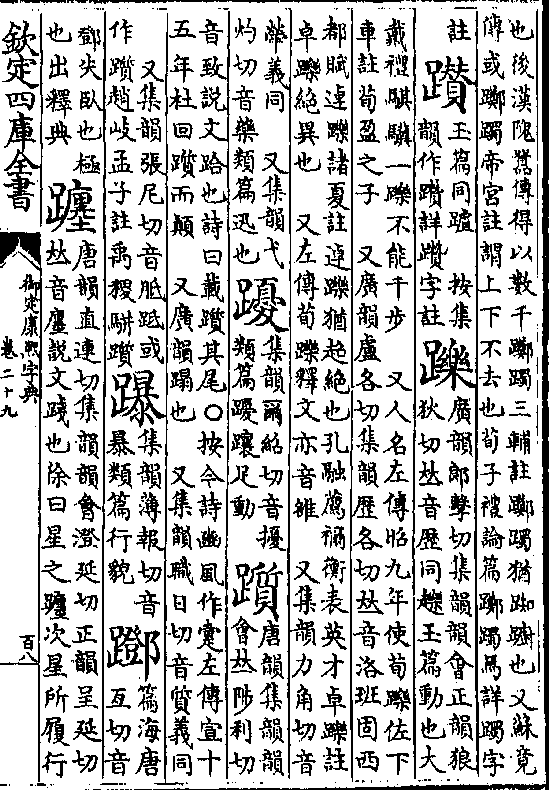 也後漢隗囂傳得以數千躑躅三輔註躑躅猶踟躕也又蘇竟
傳或躑躅帝宮註謂上下不去也荀子禮論篇躑躅焉詳躅字
註
躦
玉篇同躆 按集
韻作躦詳躦字註
躒
廣韻郎擊切集韻韻會正韻狼
狄切𠀤音歷同玉篇動也大
戴禮騏驥一躒不能千步 又人名左傳昭九年使荀躒佐下
車註荀盈之子 又廣韻盧各切集韻歷各切𠀤音洛班固西
都賦逴躒諸夏註逴躒猶超絶也孔融薦禰衡表英才卓躒註
卓躒絶異也 又左傳荀躒釋文亦音雒 又集韻力角切音
犖義同 又集韻弋
灼切音藥類篇迅也
集韻爾紹切音擾
類篇躟足動
躓
唐韻集韻韻
會𠀤陟利切
音致説文跲也詩曰載躓其尾○按今詩豳風作疐左傳宣十
五年杜回躓而顛 又廣韻蹋也 又集韻職日切音質義同
又集韻張尼切音胝跖或
作躓趙岐孟子註禹稷駢躓
集韻薄報切音
暴類篇行貌
篇海唐
亙切音
鄧失臥也極
也出釋典
躔
唐韻直連切集韻韻會澄延切正韻呈延切
𠀤音廛説文踐也徐曰星之躔次星所履行
欽定四庫全書
御定康熙字典
卷二十九
百八